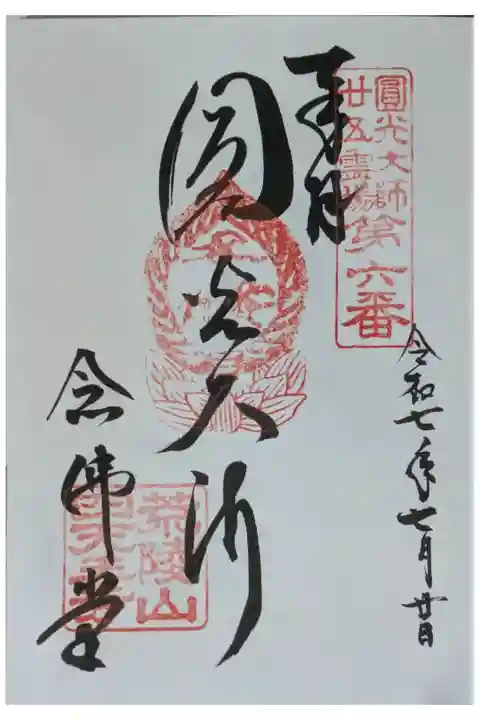 圓光大師
廿五霊場第六番
奉拝
圓光大師
念佛堂
荒陵山
四天王寺
令和七年七月廿日